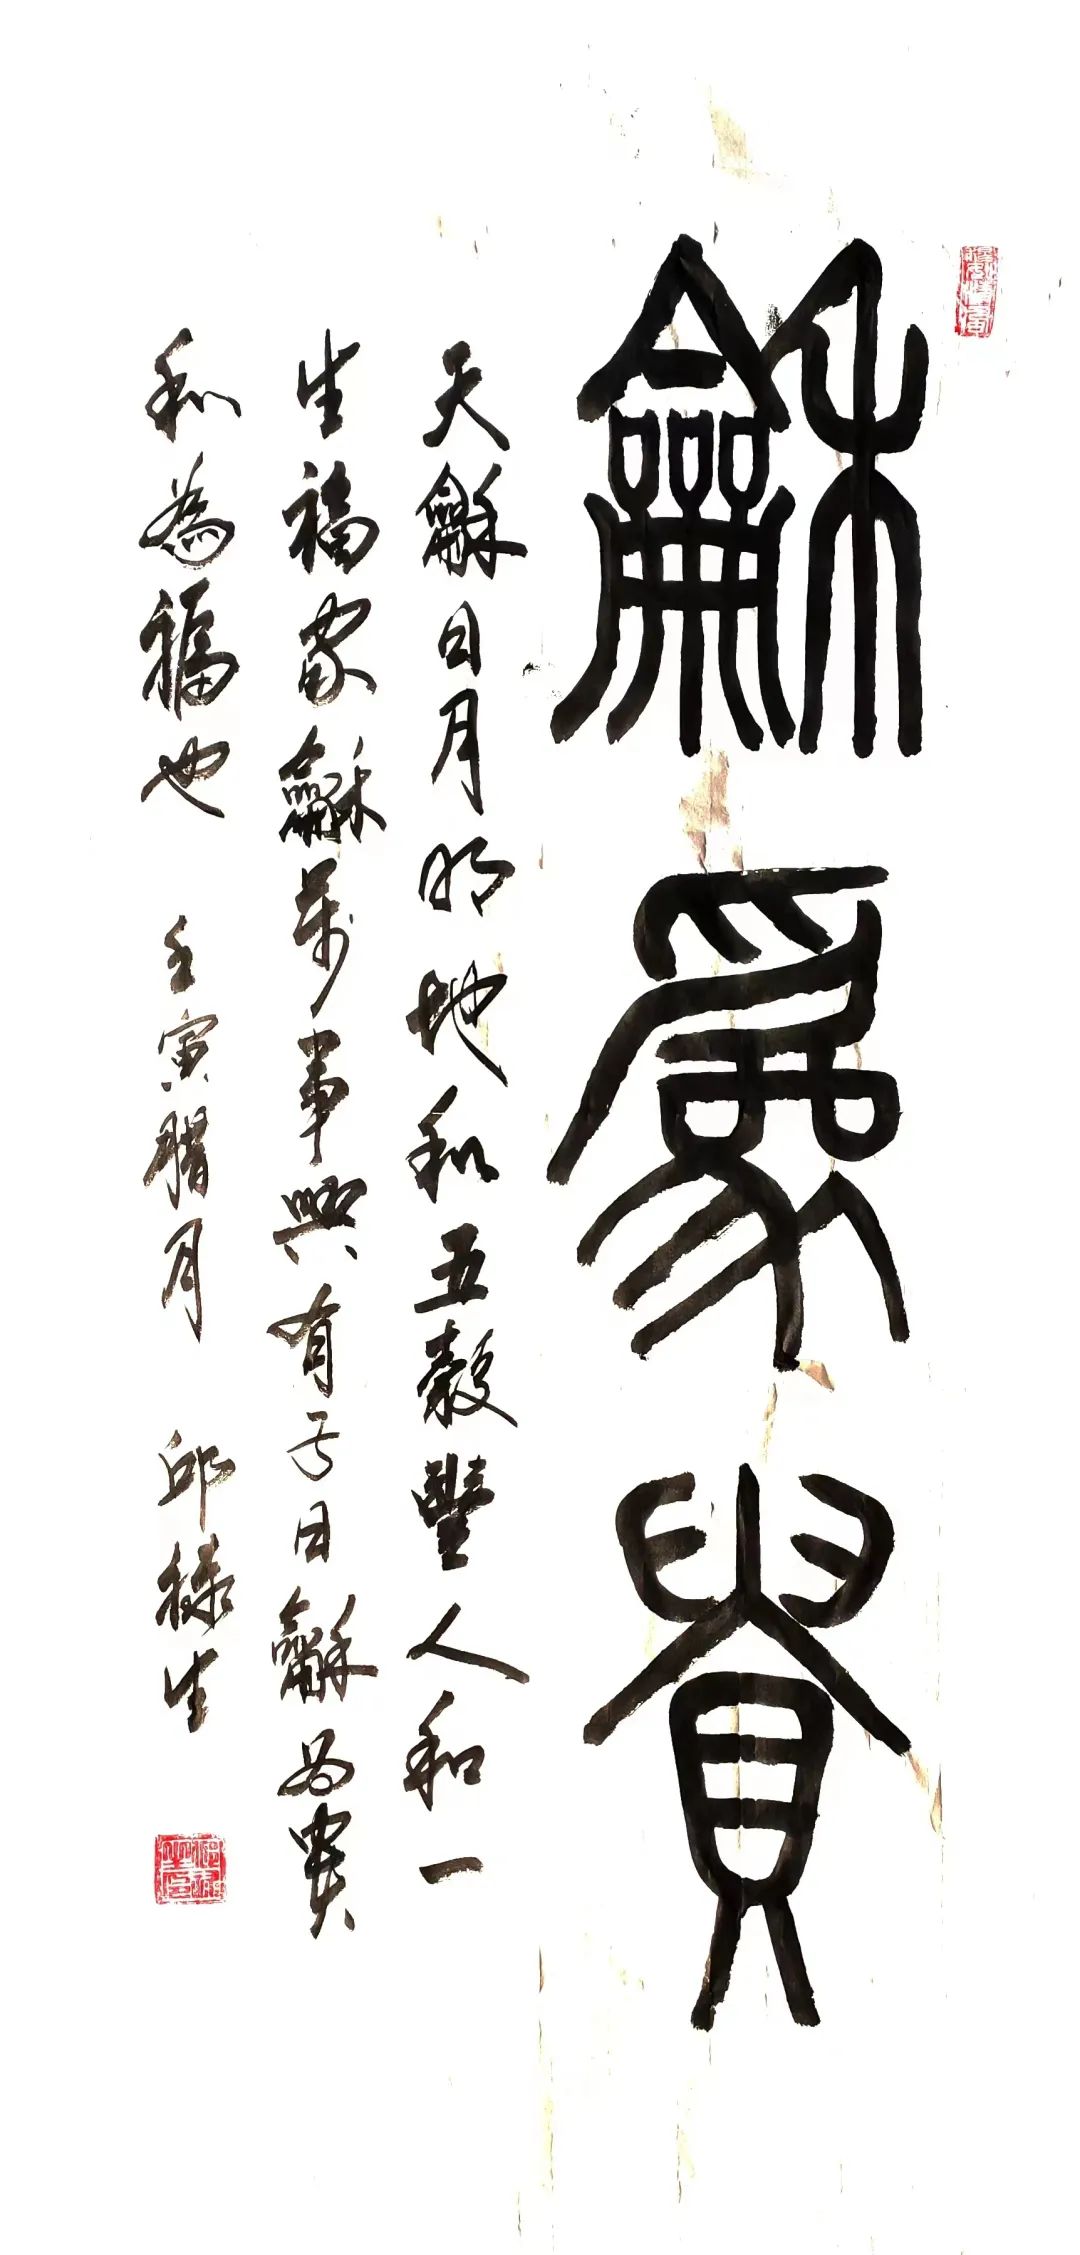 龢為貴
天龢日月明地和五穀豐人和一
生福家龢萬事興有子曰龢為貴
和為福也 壬寅腊月 邱祿生